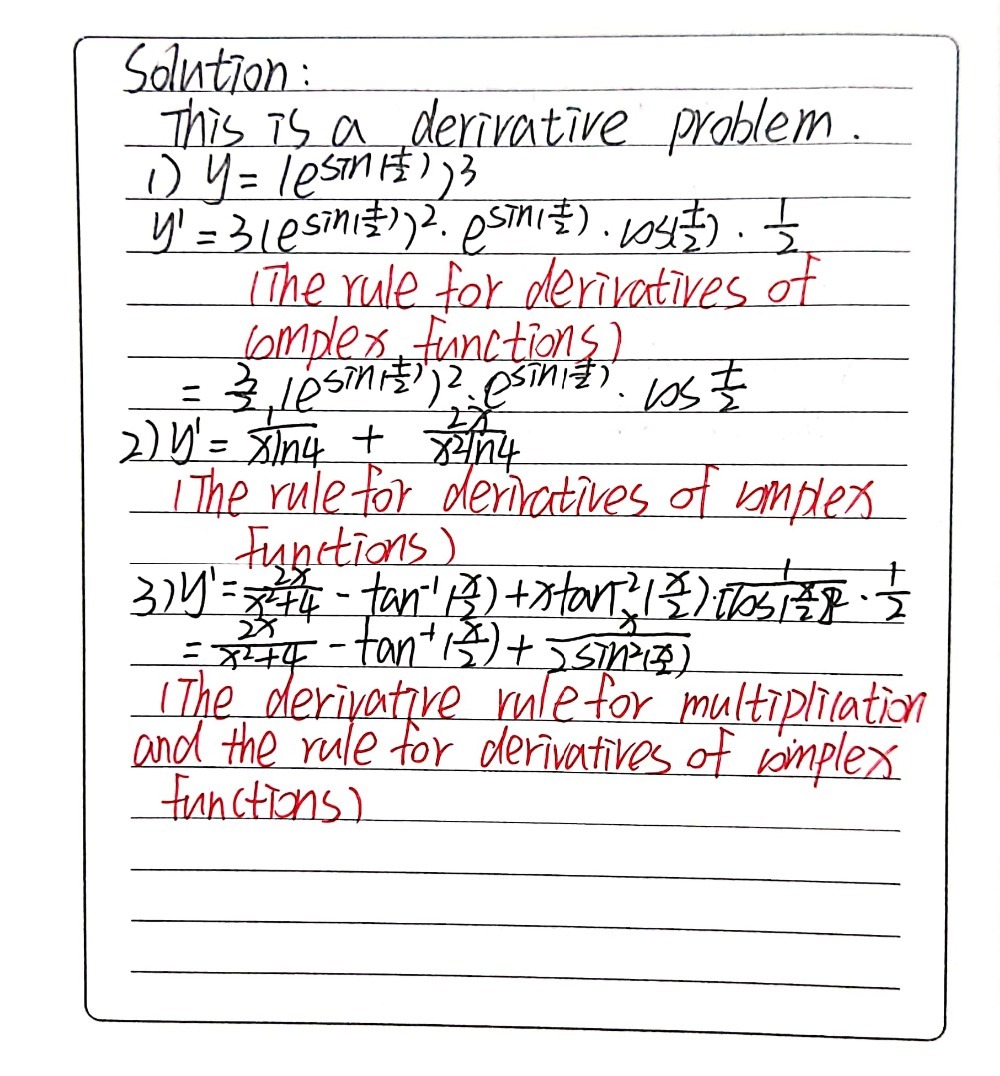 Solution:
This is a derivative problem.
1) y = (e^{sin(t/2)})^3
y' = 3(e^{sin(t/2)})^2 · e^{sin(t/2)} · cos(t/2) · 1/2
(The rule for derivatives of
complex functions)
= 3/2 (e^{sin(t/2)})^2 · e^{sin(t/2)} · cos t/2
2) y' = 1/(xln4) + 2x/(x^2ln4)
(The rule for derivatives of complex
functions)
3) y' = 2x/(x^2+4) - tan^{-1}(x/2) + xtan^{-2}(x/2) · 1/[cos(x/2)]^2 · 1/2
= 2x/(x^2+4) - tan^{-1}(x/2) + x/(2sin^2(x/2))
(The derivative rule for multiplication
and the rule for derivatives of complex
functions)